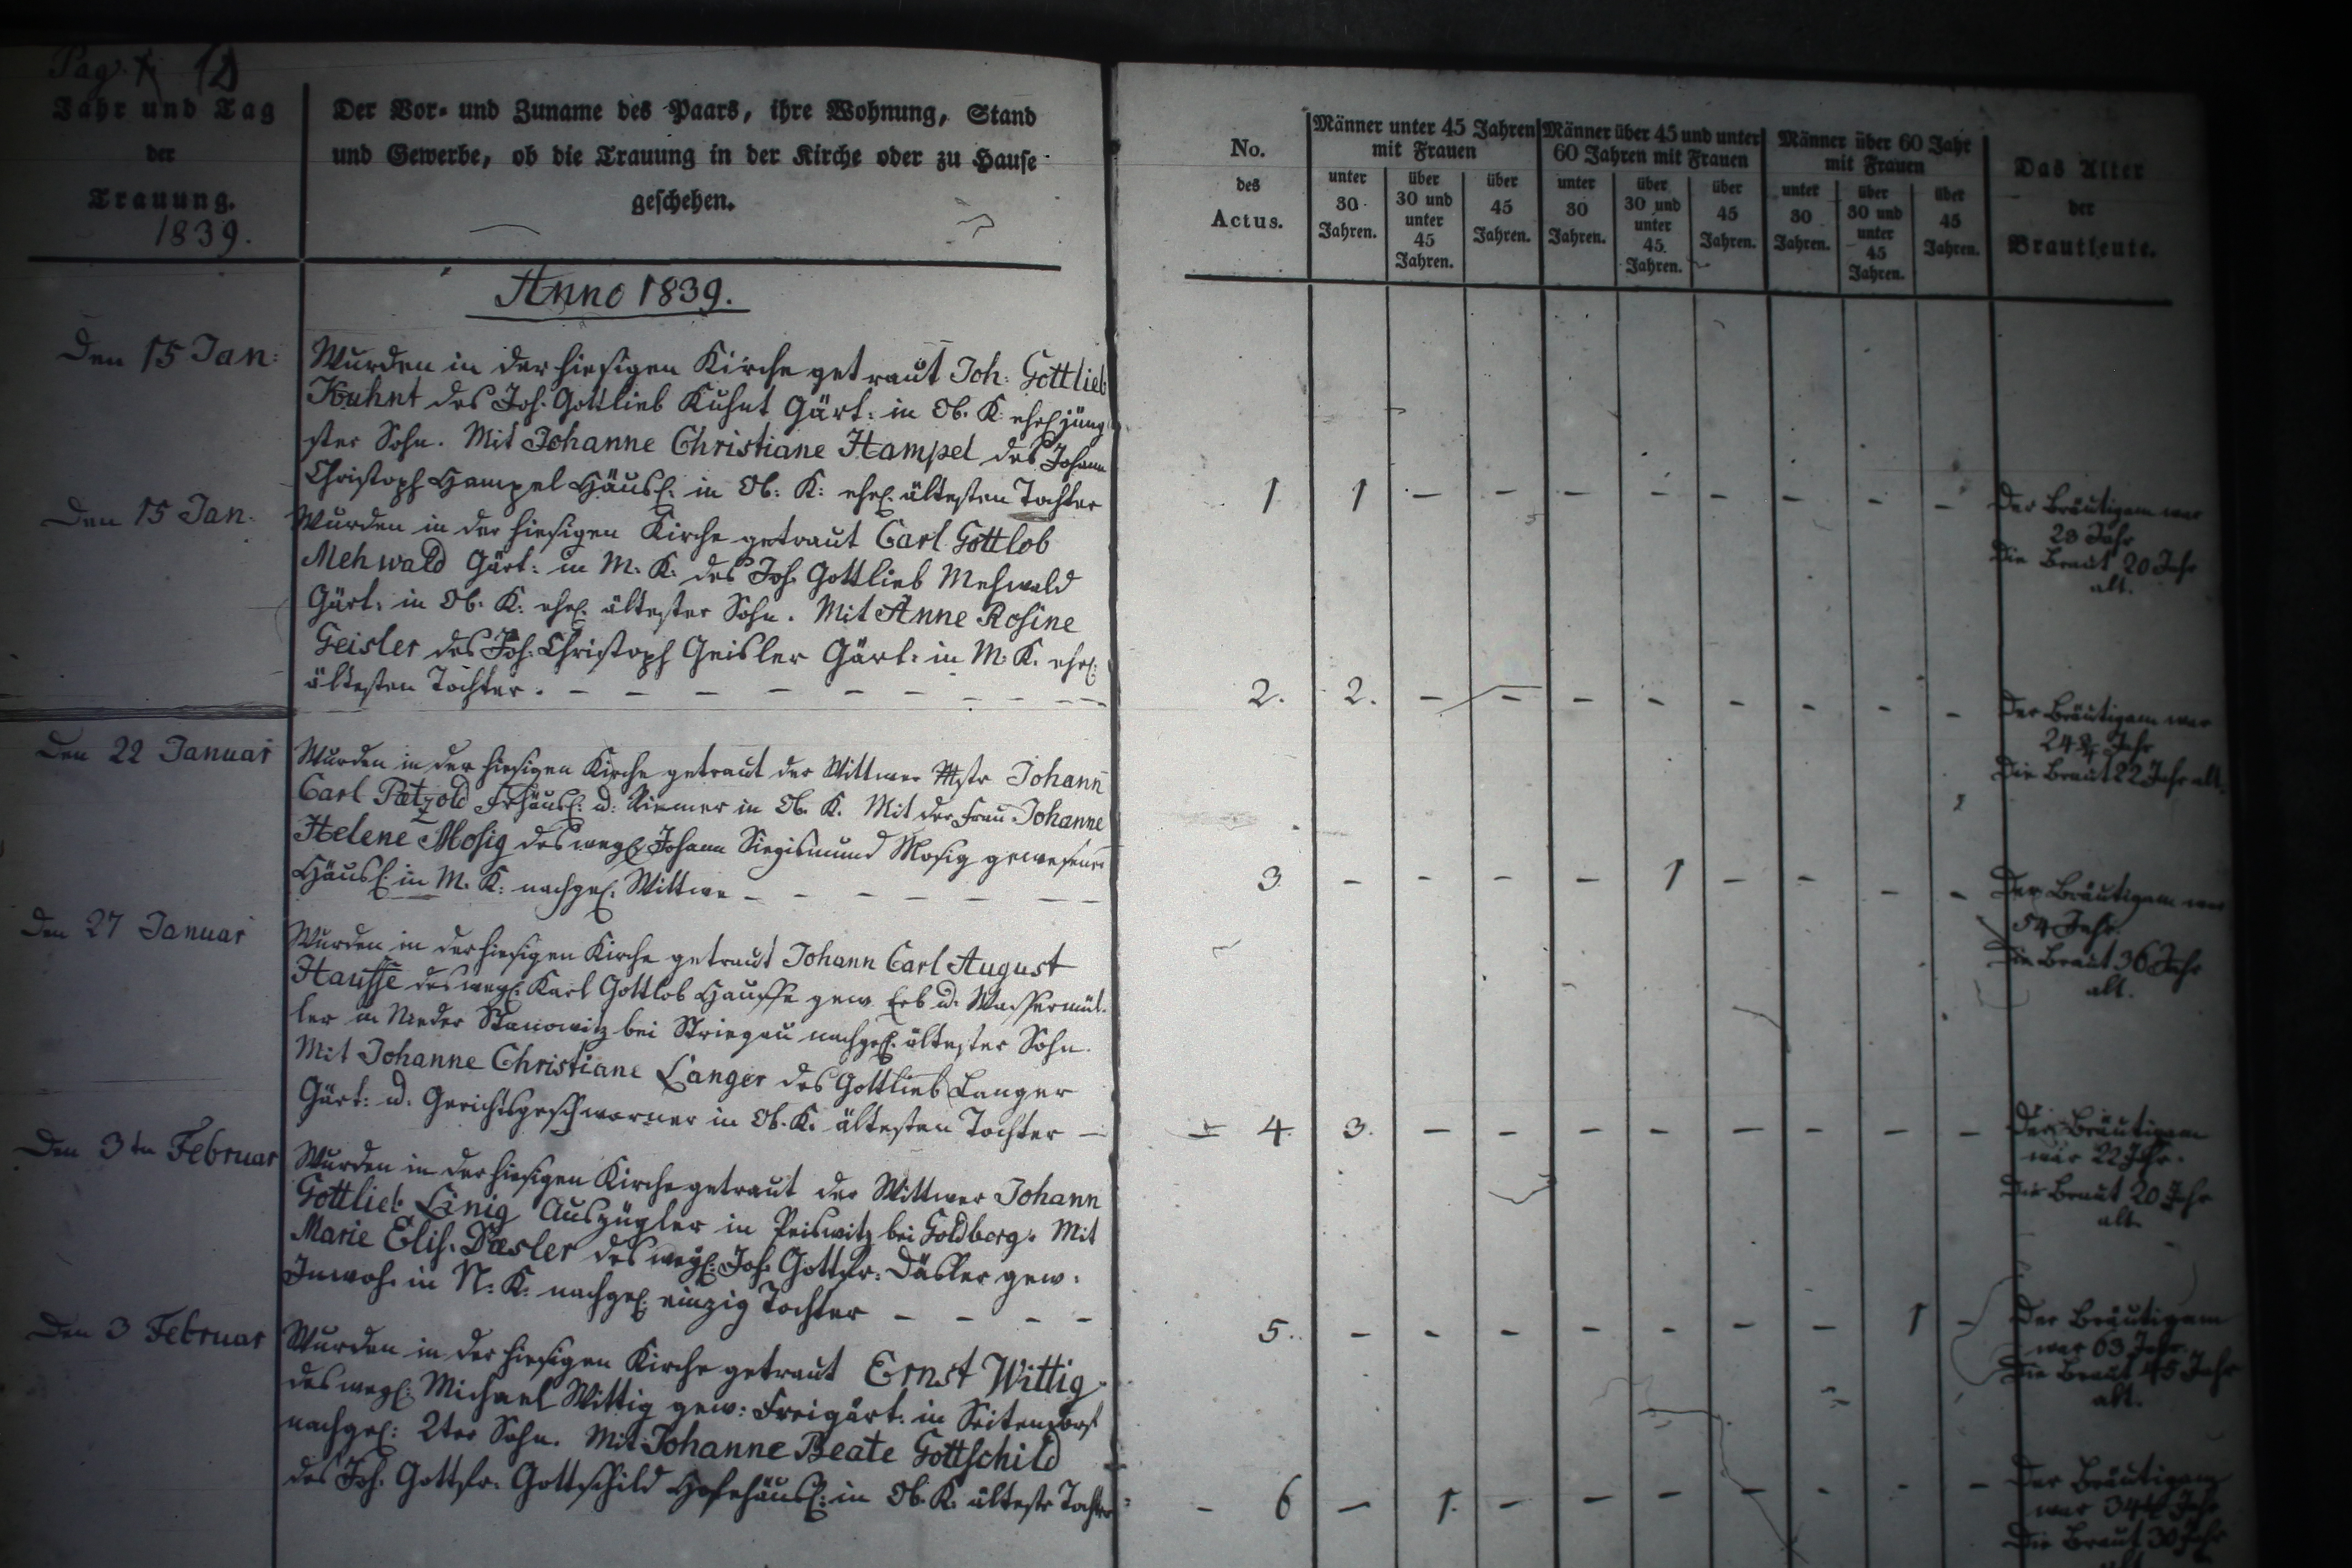 Pag. 12
Jahr und Tag
der
Trauung.
1839.
Der Vor- und Zuname des Paars, ihre Wohnung, Stand
und Gewerbe, ob die Trauung in der Kirche oder zu Hause
geschehen.
No.
des
Actus.
Männer unter 45 Jahren
mit Frauen
unter
30
Jahren.
über
30 und
unter
45
Jahren.
über
45
Jahren.
Männer über 45 und unter
60 Jahren mit Frauen
unter
30
Jahren.
über
30 und
unter
45
Jahren.
über
45
Jahren.
Männer über 60 Jahr
mit Frauen
unter
30
Jahren.
über
30 und
unter
45
Jahren.
über
45
Jahren.
Das Alter
der
Brautleute.
Anno 1839.
Den 15 Jan:
Wurden in der hiesigen Kirche getraut Joh: Gottlieb
Kuhnt des Joh. Gottlieb Kuhnt Gärt: in Ob. K: ehel jüng
ster Sohn. Mit Johanne Christiane Hampel des Johann
Christoph Hampel Häusl. in Ob: K: ehel. ältesten Tochter
1 1 — — — — — — — —
Der Bräutigam war
Jahr
Die Braut 20 Jahr
alt.
Den 15 Jan.
Wurden in der hiesigen Kirche getraut Carl Gottlob
Mehwald Gärt: in M. K. des Joh. Gottlieb Mehwald
Gärt: in Ob. K: ehel. ältester Sohn. Mit Anne Rosine
Geisler des Joh. Christoph Geisler Gärt: in M. K. ehel.
ältesten Tochter. — — — — — — — —
2. 2. — — — — — — — —
Der Bräutigam war
24 Jahr
Die Braut 22 Jahr alt.
Den 22 Januar
Wurden in der hiesigen Kirche getraut der Wittwer Mstr Johann
Carl Pætzold Frhäusl: u: Riemer in Ob. K. Mit der Frau Johanne
Helene Mosig des wegl. Johann Siegismund Mosig gewesener
Häusl. in M. K: nachgel. Wittwe — — — — — — —
3 — — — — 1 — — — —
Der Bräutigam war
54 Jahr.
Die Braut 36 Jahr
alt.
Den 27 Januar
Wurden in der hiesigen Kirche getraut Johann Carl August
Hausse des wegl. Karl Gottlob Hausse gew. Erb u. Wassermül-
ler in Nieder Stanowitz bei Striegau nachgel. ältester Sohn.
Mit Johanne Christiane Langer des Gottlieb Langer
Gärt: u. Gerichtsgeschworner in Ob. K. ältesten Tochter —
4. 3. — — — — — — — —
Der Bräutigam
war 22 Jahr.
Die Braut 20 Jahr
alt.
Den 3ten Februar
Wurden in der hiesigen Kirche getraut der Wittwer Johann
Gottlieb Auszügler in bei Goldberg. Mit
Marie Elis. Dæsler des wegl. Joh. Gottfr. Däsler gew.
Inwoh. in N. K. nachgel. einzig Tochter — — — —
5. — — — — — — — 1 —
Der Bräutigam
war 63 Jahr
Die Braut 45 Jahr
alt.
Den 3 Februar
Wurden in der hiesigen Kirche getraut Ernst Wittig
des wegl: Michael Wittig gew: Freigärt. in Seitendorf
nachgel: 2ter Sohn. Mit Johanne Beate Gottschild
des Joh. Gottfr. Gottschild Hofehäusl: in Ob. K. älteste Tochter
— 6 — 1. — — — — — — —
Der Bräutigam
war Jahr
Die Braut 30 Jahr